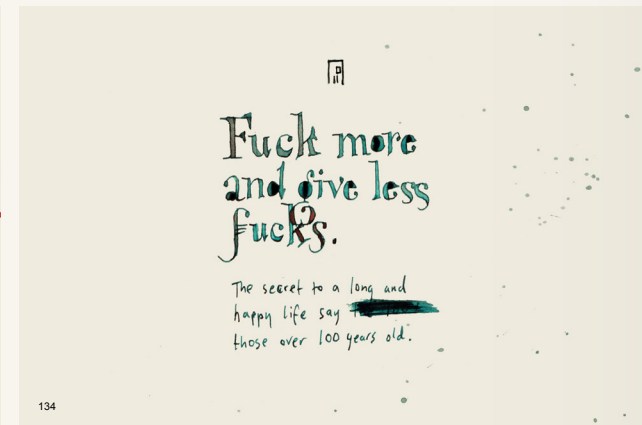 Fuck more
and give less
fucks.
The secret to a long and
happy life say
those over 100 years old.
134